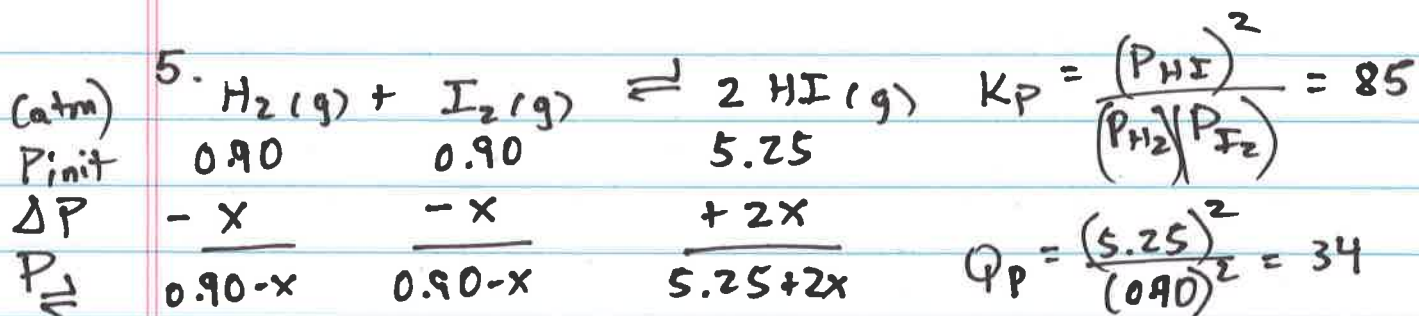 5.
(atm) H₂(g) + I₂(g) ⇌ 2 HI(g) Kp = (P_HI)² / (P_H₂)(P_I₂) = 85
Pinit 0.90 0.90 5.25
ΔP - x - x + 2x
P⇌ 0.90-x 0.90-x 5.25+2x Qp = (5.25)² / (0.90)² = 34